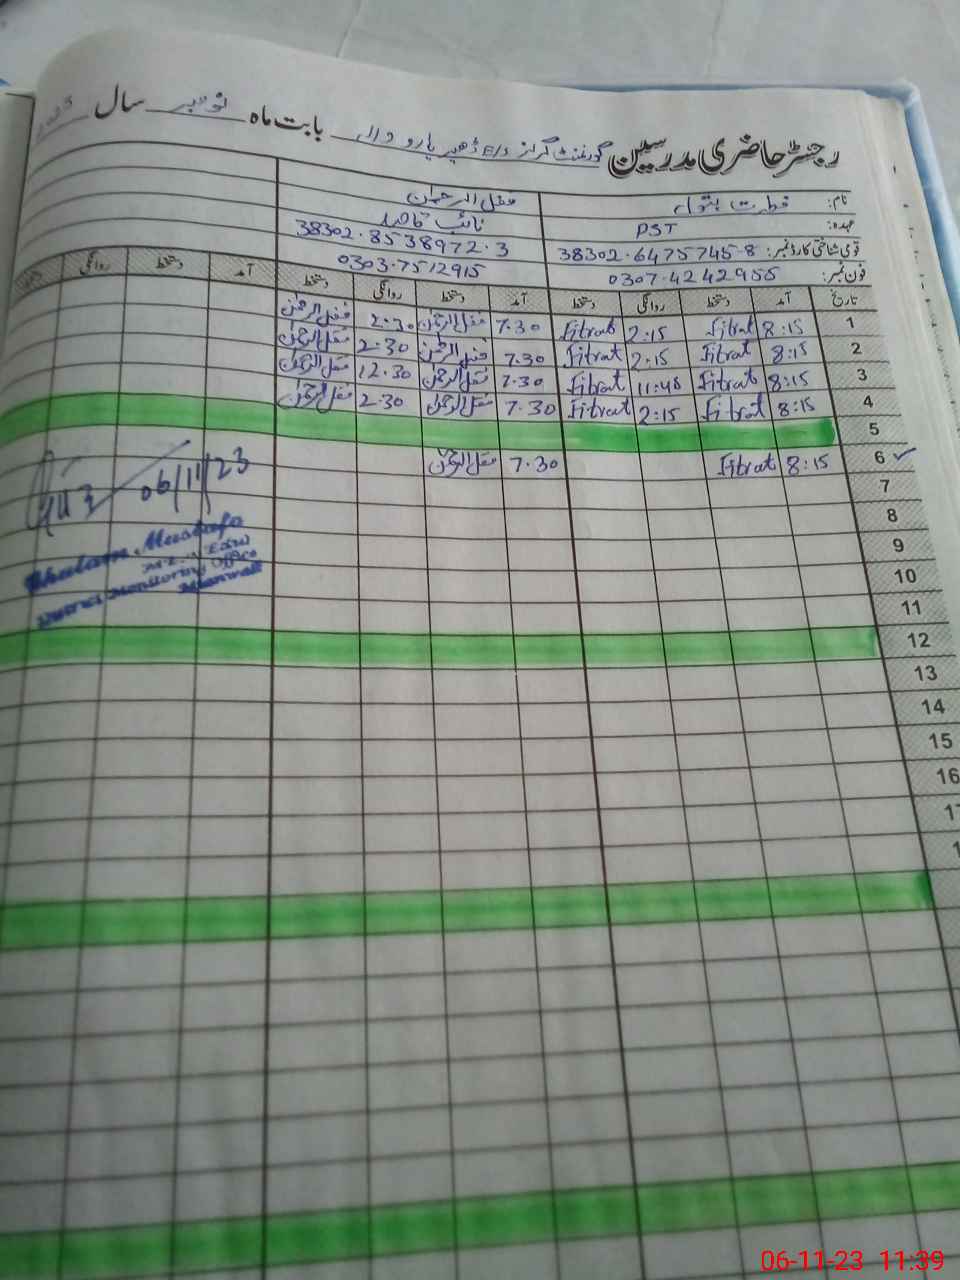 رجسٹر حاضری مدرسین گورنمنٹ گرلز E/S ڈھیر یارو والا بابت ماہ نومبر سال 2023
نام: فطرت بتول فضل الرحمٰن
عہدہ: PST نائب قاصد
قومی شناختی کارڈ نمبر: 38302.6475745-8 38302.8538972.3
فون نمبر: 0307.4242955 0303.7512915
تاریخ آمد دستخط روانگی دستخط آمد دستخط روانگی دستخط آمد دستخط روانگی دستخط
1 8:15 Fitrat 2:15 Fitrat 7.30 فضل الرحمٰن 2.30 فضل الرحمٰن
2 8:15 Fitrat 2:15 Fitrat 7.30 فضل الرحمٰن 2.30 فضل الرحمٰن
3 8:15 Fitrat 11:45 Fitrat 7.30 فضل الرحمٰن 12.30 فضل الرحمٰن
4 8:15 Fitrat 2:15 Fitrat 7.30 فضل الرحمٰن 2.30 فضل الرحمٰن
5
6 8:15 Fitrat 7.30 فضل الرحمٰن
7
8
9
10
11
12
13
14
15
16
06/11/23
Ghulam Mustafa
District Monitoring Office
Mianwali
06-11-23 11:39